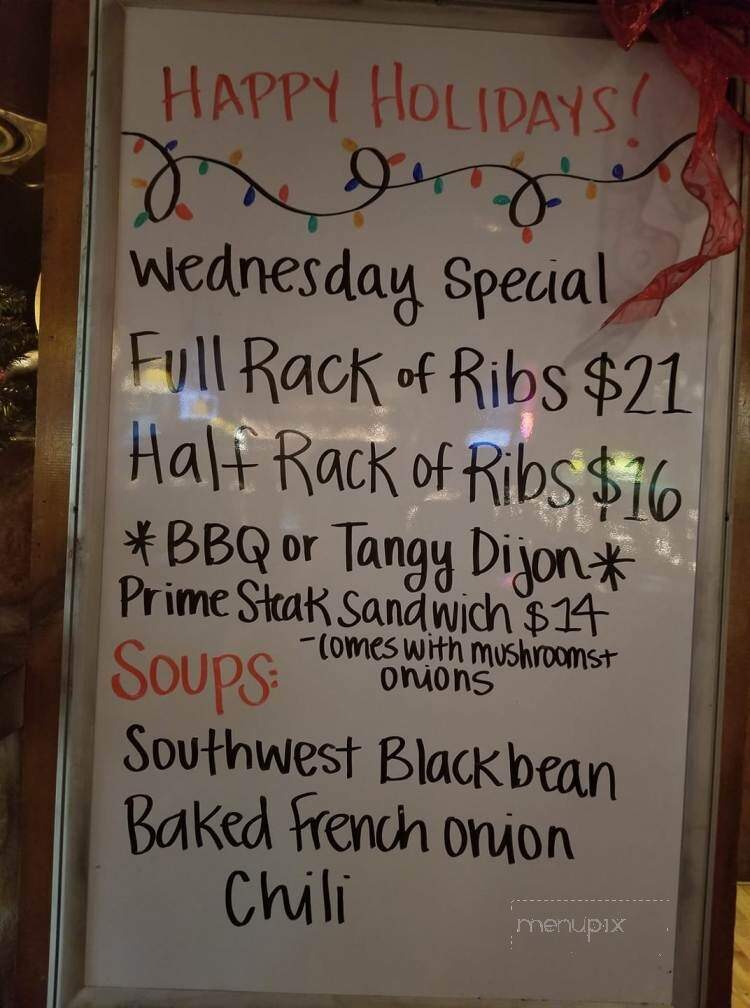 HAPPY HOLIDAYS!
Wednesday Special
Full Rack of Ribs $21
Half Rack of Ribs $16
*BBQ or Tangy Dijon*
Prime Steak Sandwich $14
-comes with mushrooms +
onions
Soups:
Southwest Blackbean
Baked French onion
Chili
menupix